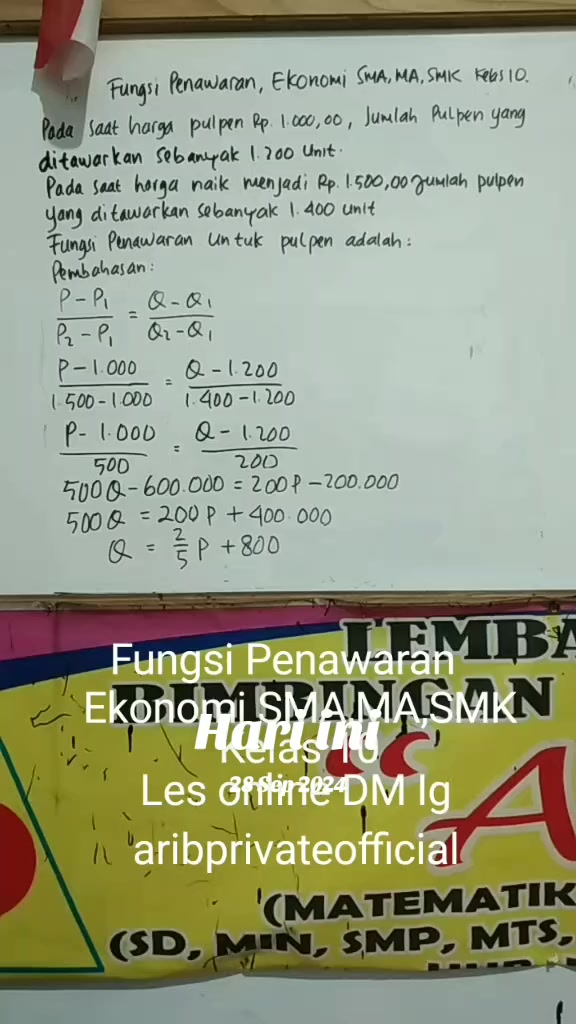 Fungsi Penawaran, Ekonomi SMA, MA, SMK Kelas 10.
Pada saat harga pulpen Rp. 1.000,00, Jumlah Pulpen yang
ditawarkan sebanyak 1.200 Unit.
Pada saat harga naik menjadi Rp. 1.500,00 Jumlah pulpen
yang ditawarkan sebanyak 1.400 unit
Fungsi Penawaran untuk pulpen adalah:
Pembahasan:
P - P₁ / P₂ - P₁ = Q - Q₁ / Q₂ - Q₁
P - 1.000 / 1.500 - 1.000 = Q - 1.200 / 1.400 - 1.200
P - 1.000 / 500 = Q - 1.200 / 200
500Q - 600.000 = 200P - 200.000
500Q = 200P + 400.000
Q = 2/5 P + 800
LEMBA
BIMBINGAN
Fungsi Penawaran
Ekonomi SMA,MA,SMK
Kelas 10
Hari ini
28 Sep 2024
Les online DM Ig
aribprivateofficial
“A
(MATEMATIK
(SD, MIN, SMP, MTS,